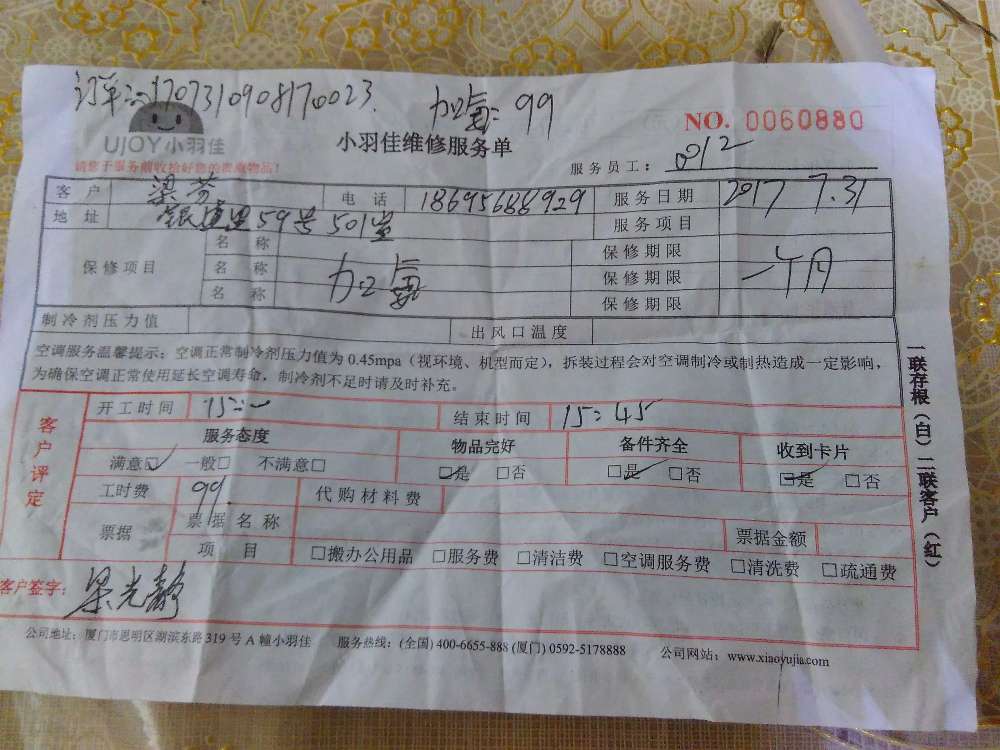 订单:170731090817 0023. 加氟: 99
UJOY小羽佳
小羽佳维修服务单
NO. 0060880
请您于服务前收拾好您的贵重物品!
服务员工: 0812
客户 梁芬 电话 18695688929 服务日期 2017 7.31
地址 59号501室 服务项目
保修项目 名称 保修期限
名称 加氟 保修期限 一个月
名称 保修期限
制冷剂压力值 出风口温度
空调服务温馨提示:空调正常制冷剂压力值为0.45mpa(视环境、机型而定),拆装过程会对空调制冷或制热造成一定影响,
为确保空调正常使用延长空调寿命,制冷剂不足时请及时补充。
客户评定
开工时间 结束时间 15:45
服务态度 物品完好 备件齐全 收到卡片
满意☑ 一般□ 不满意□ ☑是 □否 ☑是 □否 ☑是 □否
工时费 99. 代购材料费
票据 票据名称 票据金额
项目 □搬办公用品 □服务费 □清洁费 □空调服务费 □清洗费 □疏通费
客户签字: 梁光静
公司地址:厦门市思明区湖滨东路319号A幢小羽佳 服务热线:(全国)400-6655-888 (厦门)0592-5178888 公司网站:www.xiaoyujia.com
一联存根(白)二联客户(红)